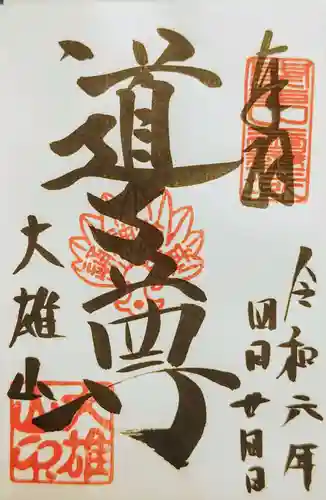 奉拝
令和六年
四月廿四日
道了尊
大雄山
大雄
山印